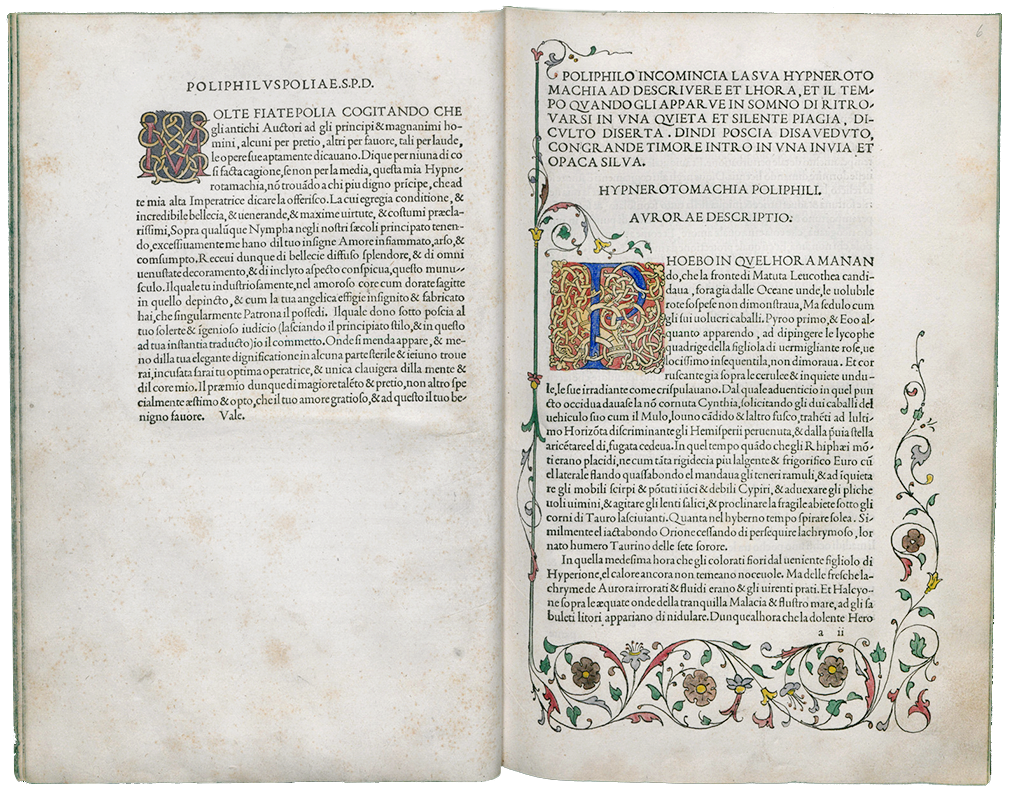 POLIPHILVS POLIAE. S. P. D.
MOLTE FIATE POLIA COGITANDO CHE
gli antichi Auctori ad gli principi & magnanimi ho-
mini, alcuni per pretio, altri per fauore, tali per laude,
le opere sue aptamente dicauano. Di que per niuna di co
si facta cagione, se non per la media, questa mia Hypne-
rotamachia, nõ trouãdo a chi piu digno prĩcipe, che ad
te mia alta Imperatrice dicare la offerisco. La cui egregia conditione, &
incredibile bellecia, & uenerande, & maxime uirtute, & costumi præcla-
rissimi, Sopra qualũque Nympha negli nostri sæcoli principato tenen-
do, excessiuamente me hano dil tuo insigne Amore infiammato, arso, &
comsumpto. Receui dunque di bellecie diffuso splendore, & di omni
uenustate decoramento, & di inclyto aspecto conspicua, questo munu-
sculo. Il quale tu industriosamente, nel amoroso core cum dorate sagitte
in quello depincto, & cum la tua angelica effigie insignito & fabricato
hai, che singularmente Patrona il possedi. Il quale dono sotto poscia al
tuo solerte & ĩgenioso iudicio (lasciando il principiato stilo, & in questo
ad tua instantia traducto) io il commetto. Onde si menda appare, & me-
no dilla tua elegante dignificatione in alcuna parte sterile & ieiuno troue
rai, incusata sarai tu optima operatrice, & unica clauigera dilla mente &
dil core mio. Il præmio dunque di magiore talẽto & pretio, non altro spe
cialmente æstimo & opto, che il tuo amore gratioso, & ad questo il tuo be-
nigno fauore. Vale.
6
POLIPHILO INCOMINCIA LA SVA HYPNEROTO
MACHIA AD DESCRIVERE ET LHORA, ET IL TEM-
PO QVANDO GLI APPARVE IN SOMNO DI RITRO-
VARSI IN VNA QVIETA ET SILENTE PIAGIA, DI-
CVLTO DISERTA. DINDI POSCIA DISAVEDVTO,
CON GRANDE TIMORE INTRO IN VNA INVIA ET
OPACA SILVA.
HYPNEROTOMACHIA POLIPHILI.
AVRORAE DESCRIPTIO.
PHOEBO IN QVEL HORA MANAN
do, che la fronte di Matuta Leucothea candi-
daua, fora gia dalle Oceane unde, le uolubile
rote sospese non dimonstraua, Ma sedulo cum
gli sui uolucri caballi. Pyroo primo, & Eoo al-
quanto apparendo, ad dipingere le lycophe
quadrige della figliola di uermigliante rose, ue
locissimo insequentila, non dimoraua. Et cor
ruscante gia sopra le cerulee & inquiete undu-
le, le sue irradiante come crispulauano. Dal quale aduenticio in quel pun
cto occidua dauase la nõ cornuta Cynthia, solicitando gli dui caballi del
uehiculo suo cum il Mulo, louno cãdido & laltro fusco, trahẽti ad lulti-
mo Horizõta discriminante gli Hemisperii peruenuta, & dalla p̃uia stella
aricẽtare el di, fugata cedeua. In quel tempo quãdo che gli Rhiphæi mõ-
ti erano placidi, ne cum tãta rigidecia piu lalgente & frigorifico Euro cũ
el laterale flando quassabondo el mandaua gli teneri ramuli, & ad ĩquieta
re gli mobili scirpi & põtuti iũci & debili Cypiri, & aduexare gli pliche
uoli uimini, & agitare gli lenti salici, & proclinare la fragile abiete sotto gli
corni di Tauro lasciuianti. Quanta nel hyberno tempo spirare solea. Si-
milmente el iactabondo Orione cessando di persequire lachrymoso, lor
nato humero Taurino delle sete sorore.
In quella medesima hora che gli colorati fiori dal ueniente figliolo di
Hyperione, el calore ancora non temeano noceuole. Ma delle fresche la-
chryme de Aurora irrorati & fluidi erano & gli uirenti prati. Et Halcyo-
ne sopra le æquate onde della tranquilla Malacia & flustro mare, ad gli sa
buleti litori appariano di nidulare. Dunque alhora che la dolente Hero
a ii